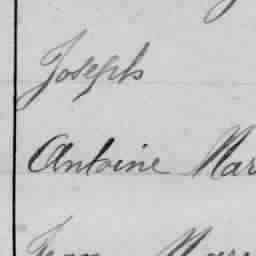 Joseph
Antoine Mar
Jean